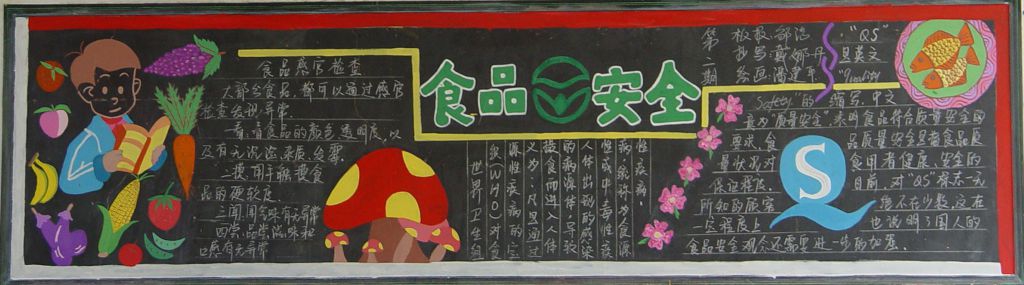 食品安全
食品感官检查
大部分食品，都可以通过感官
检查发现异常。
一看：看食品的颜色、透明度，以
及有无沉淀、杂质、发霉。
二摸：用手触摸食
品的硬软度
三闻：闻气味有无异常
四尝：品尝滋味和
口感有无异常
世界卫生组
织（WHO）对食
源性疾病的定
义为：凡是通过
摄食而进入人体
的病源体，导致
人体患
性或中毒性疾
病，统称为食源
性疾病。
第二期
板报：
抄写：
绘画：
"QS"
是英文
"Quality
Safety"的缩写，中文
意为"质量安全"，表明食品符合质量安全的
要求。食
品质量安全是指食品质
量状况对
食用者健康、安全的
保证程度。
目前，对"QS"标志一无
所知的顾客
还不在少数，这在
一定程度上
也说明了国人的
食品安全观念还需要进一步的加强。
S